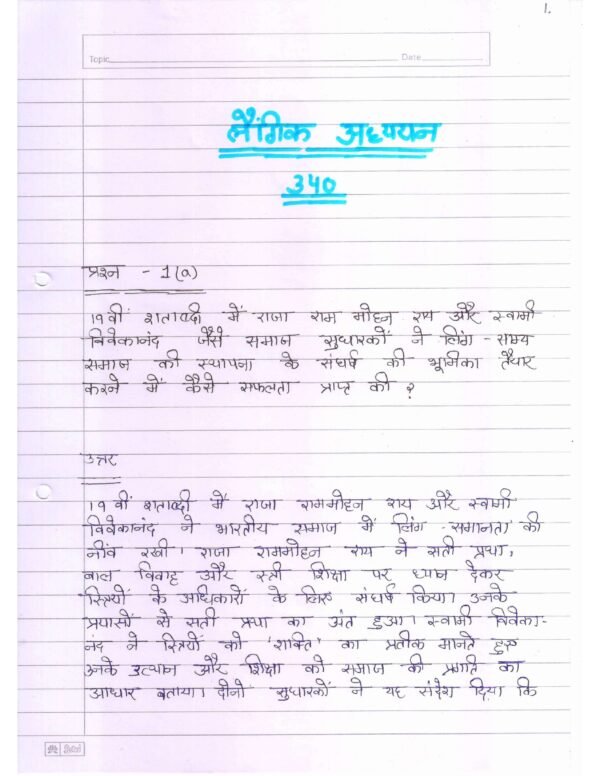 1.
Topic
Date
लैंगिक अध्ययन
340
प्रश्न - 1(a)
19वीं शताब्दी में राजा राम मोहन राय और स्वामी
विवेकानंद जैसे समाज सुधारकों ने लिंग - समय
समाज की स्थापना के संघर्ष की भूमिका तैयार
करने में कैसे सफलता प्राप्त की ?
उत्तर
19वीं शताब्दी में राजा राममोहन राय और स्वामी
विवेकानंद ने भारतीय समाज में लिंग - समानता की
नींव रखी। राजा राममोहन राय ने सती प्रथा,
बाल विवाह और स्त्री शिक्षा पर ध्यान देकर
स्त्रियों के अधिकारों के लिए संघर्ष किया। उनके
प्रयासों से सती प्रथा का अंत हुआ। स्वामी विवेका-
नंद ने स्त्रियों को 'शक्ति' का प्रतीक मानते हुए
उनके उत्थान और शिक्षा को समाज की प्रगति का
आधार बताया। दोनो सुधारकों ने यह संदेश दिया कि